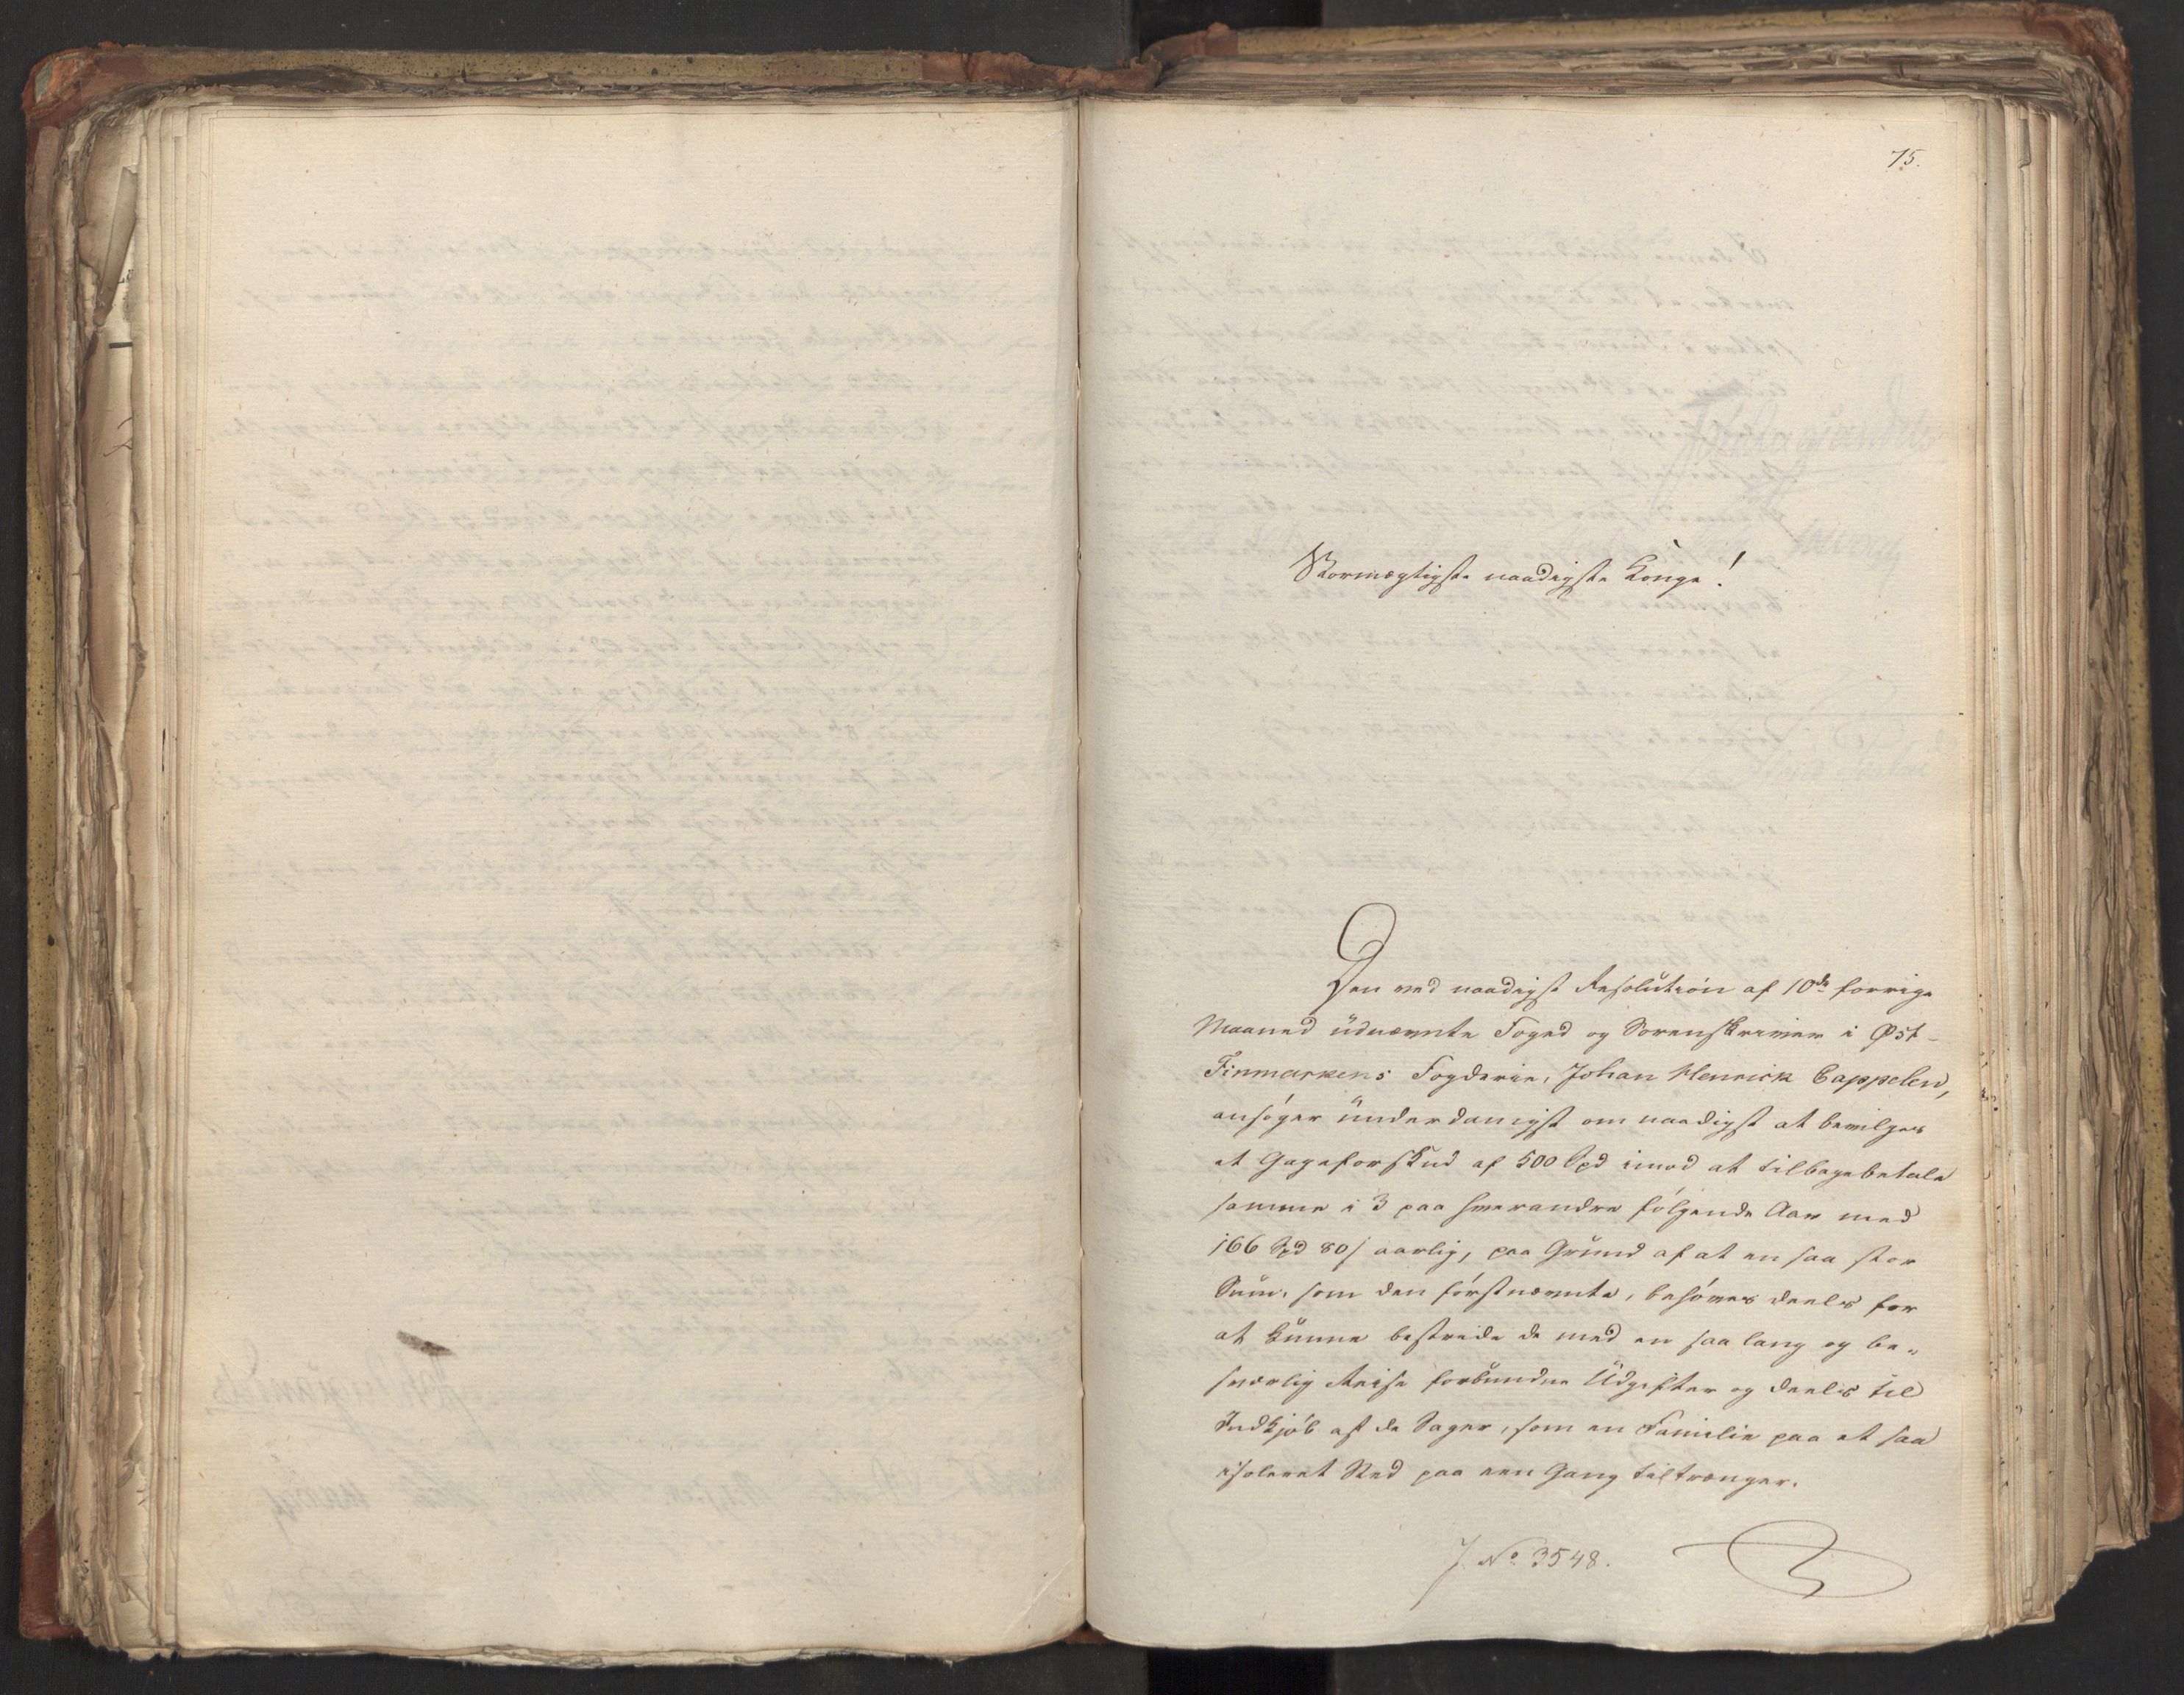 75.
Stormægtigste naadigste Konge!
Den ved naadigst Resolution af 10de forrige
Maaned üdnævnte Foged og Sorenskriver i Øst-
Finmarkens Fogderie, Johan Henrick Cappelen,
ansøger ünderdanigst om naadigst at bevilges
et Gageforskud af 500 Spd imod at tilbagebetale
samme i 3 paa hverandre følgende Aar med
166 Spd 80 s aarlig, paa Grund af at en saa stor
Sum, som den førstnævnte, behøves deels for
at kunne bestride de med en saa lang og be-
sværlig Reise forbundne Udgifter og deels til
Indkjøb af de Sager, som en Familie paa et saa
isoleret Sted paa een Gang tiltrænger.
J. No 3548.